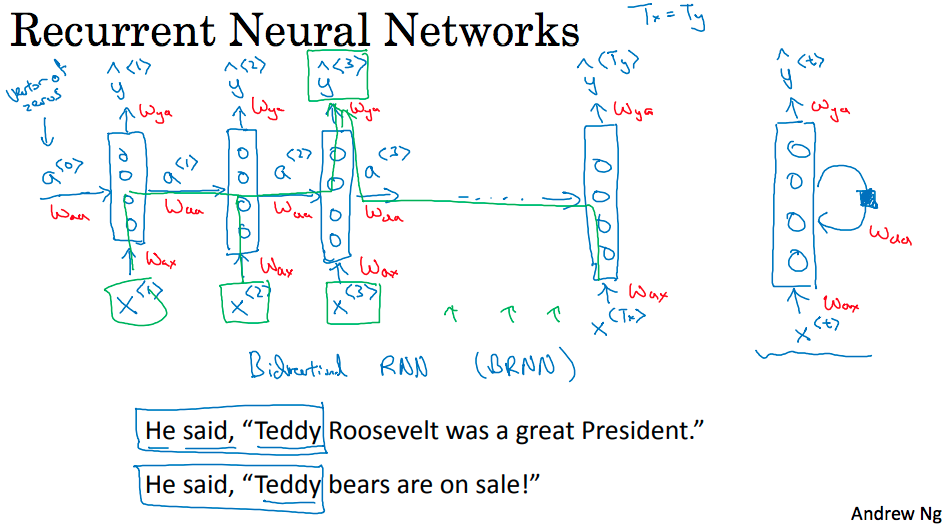 Recurrent Neural Networks
Tx = Ty
vector of zeros
ŷ<1> ŷ<2> ŷ<3> ŷ<Ty> ŷ<t>
Wya Wya Wya Wya Wya
a<0> a<1> a<2> a<3>
Waa Waa Waa Waa Waa
Wax Wax Wax Wax Wax
x<1> x<2> x<3> x<Tx> x<t>
Bidirectional RNN (BRNN)
He said, “Teddy Roosevelt was a great President.”
He said, “Teddy bears are on sale!”
Andrew Ng